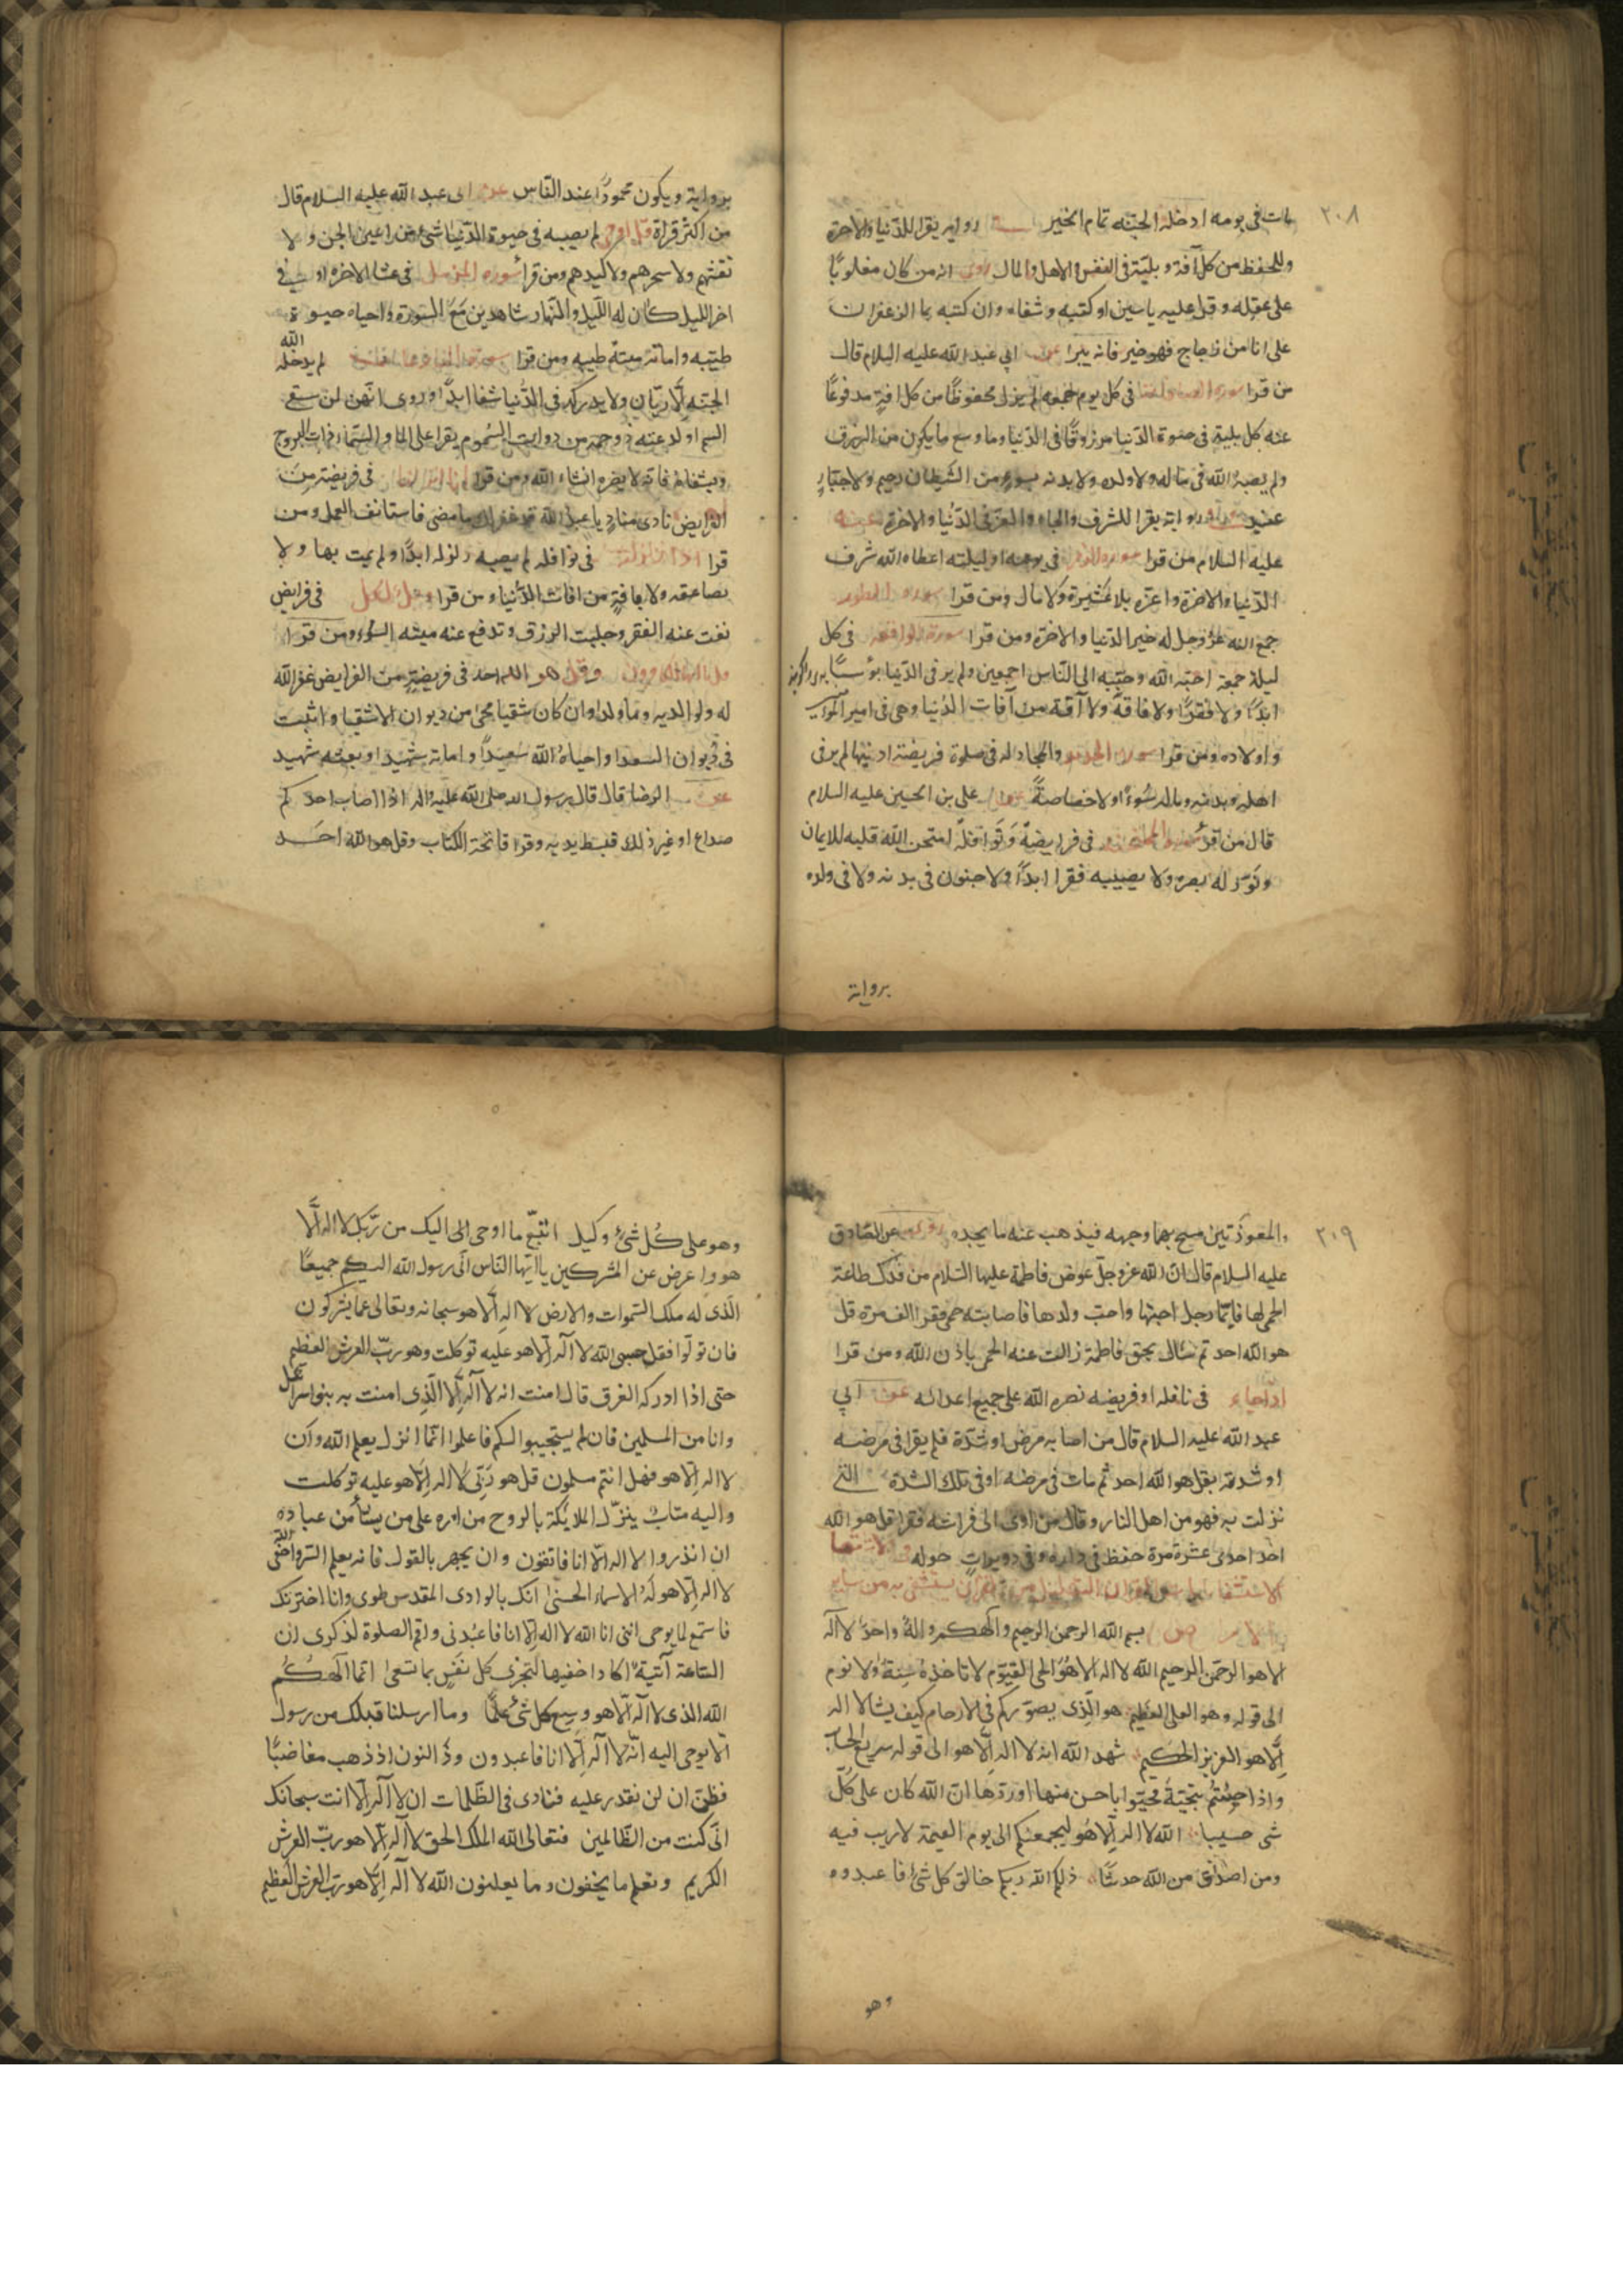 ٢٠٨
مات فى يومه ادخله الجنّه تمام الخير رواية يقرا للدّنيا والآخرة
وللحفظ من كل آفة وبليّة فى النفس والاهل والمال روى انه من كان مغلوبًا
على عقله وقرا عليه ياسين او كتبه وشفاه وان كتبه بما الزعفران
على انا من زجاج فهو خير فانه يبرا عن ابي عبد الله عليه السلام قال
من قرا سورة الصافات فى كل يوم جمعه لم يزل محفوظًا من كل افةٍ مدفوعًا
عنه كل بلية فى حيوة الدّنيا مرزوقًا فى الدّنيا وما وسع ما يكون من الرزق
ولم يصبه الله فى ماله ولا ولده ولا بدنه بسوءٍ من الشيطان رجيم ولا جبّارٍ
عنيد رواية يقرا للشرف والجاه والعزّ فى الدّنيا والاخرة عنه
عليه السلام من قرا سورة الزمر فى يومه او ليلته اعطاه الله شرف
الدّنيا والاخرة واعزّه بلا عشيرة ولا مال ومن قرا سورة الطور
جمع الله عزّ وجل له خير الدّنيا والاخرة ومن قرا سورة الواقعه فى كل
ليلة جمعة احبّه الله وحبّبه الى النّاس اجمعين ولم ير فى الدّنيا بؤسًا
ابدًا ولا فقرًا ولا فاقةً ولا آفة من آفات الدّنيا وهى فى امير
واولاده ومن قرا سورة الحديد والمجادله فى صلوة فريضة ادمنها لم ير فى
اهله وبدنه وماله سُوءًا ولا خصاصةً على بن الحسين عليه السلام
قال من اقرا سورة الممتحنه فى فرايضهً ونوافلهً امتحن الله قلبه للايمان
ونوّر له بصره ولا يصيبه فقرا ابدًا ولا جنون فى بدنه ولا فى ولده
برواية
برواية ويكون محمودًا عند النّاس عن ابى عبد الله عليه السّلام قال
من اكثر قراة قل اوحى لم يصيبه فى حيوة الدّنيا شئ من اعين الجن ولا
نفثهم ولا سحرهم ولا كيدهم ومن قرا سوره المزمل فى عشا الاخره او فى
اخر الليل كان له اللّيل والنّهار شاهدين مَعَ السّورة واحياه حيوة
طيّبه واماته ميتةً طيبه ومن قرا سورة لم يدخله الله
الجنّه الّا ريّان ولا يدركه فى الدّنيا شقا ابدًا وروى انّهن لن سقى
السم او لدغته ذو حمة من ذوات السّموم يقرا على الما والسّمآء ذات البروج
ويشفاه فانه لا يضره انشاء الله ومن قرا انا انزلناه فى فريضة من
الفرايض نادى منادٍ يا عبد الله قد غفر لك ما مضى فاستانف العمل ومن
قرا اذا زلزلت فى نوافله لم يصبه زلزله ابدًا ولم يمت بها ولا
بصاعقه ولا بافةٍ من افات الدّنيا ومن قرا ويل لكل فى فرايض
نفت عنه الفقر وجلبت الرزق وتدفع عنه ميتة السّوء ومن قرا
قل يا ايها الكافرون وقل هو الله احد فى فريضةٍ من الفرايض غفر الله
له ولوالديه وما ولدا وان كان شقيا محى من ديوان الاشقيا واثبت
فى ديوان السعدا واحياه الله سَعِيدًا واماته شهيدا وبعثه شهيد
عن الرضا قال قال رسول الله صلى الله عليه واله اذا اصاب احدكم
صداع او غير ذلك فبسط يديه وقرا فاتحة الكتاب وقل هو الله احَد
٢٠٩
والمعوذتين مسح بهما وجهه فيذهب عنه ما يجده عن الصّادق
عليه السلام قال انّ الله عزّ وجلّ عوض فاطمة عليها السّلام من فدك طاعة
الحمى لها فايّما رجل احبّها واحب ولدها فاصابته حمى فقرا الف مرة قل
هو الله احد ثم سال بحق فاطمة زالت عنه الحمى باذن الله ومن قرا
اذا جاء فى نافله او فريضه نصره الله على جميع اعدائه عن ابي
عبد الله عليه السلام قال من اصابه مرض او شدّة فلم يقرا فى مرضه
او شدته بقل هو الله احد ثم مات فى مرضه او فى تلك الشدة التى
نزلت به فهو من اهل النار وقال من اوى الى فراشه فقرا قل هو الله
احد احدى عشرة مرة حفظ فى داره وفى دويرات حوله
بسم الله الرحمن الرحيم والهكم والهٌ واحدٌ لا اله
الا هو الرحمن الرحيم الله لا اله الا هُوَ الحى القيّوم لا تاخذه سِنةٌ ولا نوم
الى قوله وهو العلى العظيم هو الّذى يصوّركم فى الارحام كيف يشا لا اله
اِلّا هو العزيز الحكيم شهد الله انه لا اله الّا هو الى قوله سريع الحساب
واذا حيّيتُم بتحيّةٍ فحيّوا باحسن منها او ردّها انّ الله كان على كُلّ
شى حسيبا الله لا اله اِلّا هُو ليجمعنكم الى يوم القيمة لا ريب فيه
ومن اصدق من الله حديثًا ذلكم الله ربكم خالق كل شئ فاعبدوه
وهو
وهو على كُل شئٍ وكيل اتّبع ما اوحى الى اليك من رّبّك لا اله الّا
هو واعرض عن المشركين يا ايّها النّاس انى رسول الله اليكم جميعًا
الّذى له ملك السّموات والارض لا اله الّا هو سبحانه وتعالى عما يشركون
فان تولّوا فقل حسبى الله لا آله الّا هو عليه توكلت وهو ربّ العرش العظيم
حتى اذا ادركه الغرق قال امنت انه لا آله اِلّا الّذى امنت به بنوا اسرائيل
وانا من المسلمين فان لم يستجيبوا لكم فاعلموا انّما انزل بعلم الله وان
لا اله اِلّا هو فهل انتم مسلمون قل هو ربّى لا اله اِلّا هو عليه توكلت
واليه متاب ينزّل الملايكة بالروح من امره على من يشآء من عباده
ان انذروا لا اله الّا انا فاتقون وان يجهر بالقول فانه يعلم السّر واخفى الله
لا اله الّا هو لَهُ الاسماء الحسنى انك بالوادى المقدس طوى وانا اخترتك
فاستمع لما يوحى اننى انا الله لا اله اِلّا انا فاعبُدنى واقم الصلوة لذكرى ان
السّاعة آتيةٌ اكاد اخفيها لتجزى كل نفسٍ بما تسعى انّما الَهُكُم
الله الذى لا آله الّا هو وسِع كل شئ علمًا وما ارسلنا قبلك من رسول
الّا يوحى اليه انّه لا آله اِلّا انا فاعبدون وذَا النون اذ ذهب مغاضبًا
فظنّ ان لن نقدر عليه فنادى فى الظّلمات ان لا آله اِلّا انت سبحانك
انّى كنت من الظّالمين فتعالى الله الملك الحق لا آله اِلّا هو ربّ العرش
الكريم ونعلم ما يخفون وما يعلنون الله لا آله اِلّا هو ربّ العرش العظيم